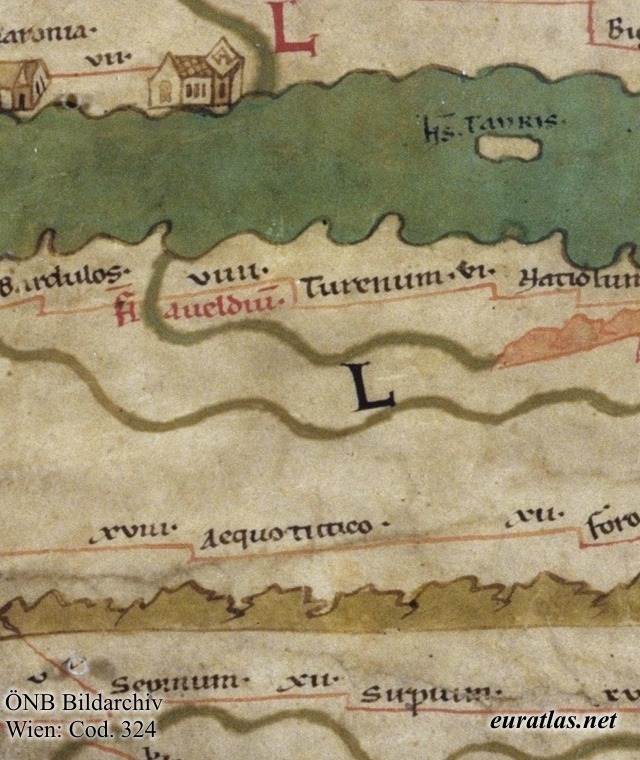 L
aronia.
VII.
Bi
Is. TAVRIS.
Bardulos.
VIIII.
Turenum.
VI.
Natiolum
Fl. aveldiū.
L
XVIII.
Aequo tutico.
XII.
foro
V
Sepinum.
XII.
Sirpium.
XV
ÖNB Bildarchiv
Wien: Cod. 324
euratlas.net